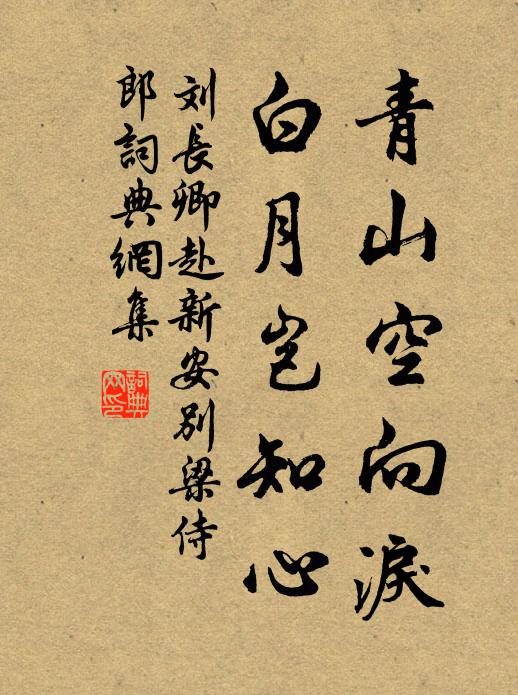 青山空向淚
白月岂知心
刘長卿赴新安别梁侍
郎詞典網集
詞典
网印